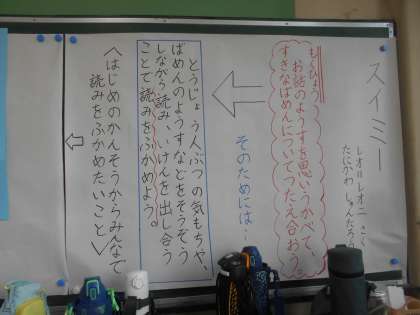 スイミー
レオ=レオニ さく
たにかわ しゅんたろう
もくひょう
お話のようすを思いうかべて、
すきなばめんについてつたえ合おう。
そのためには…
とうじょう人ぶつの気もちや、
ばめんのようすなどをそうぞう
しながら読み、いけんを出し合う
ことで読みをふかめよう。
〈はじめのかんそうからみんなで
読みをふかめたいこと〉